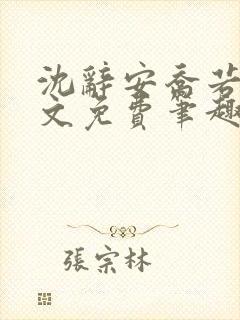 沈辭安喬若
文免費筆趣
張宗林